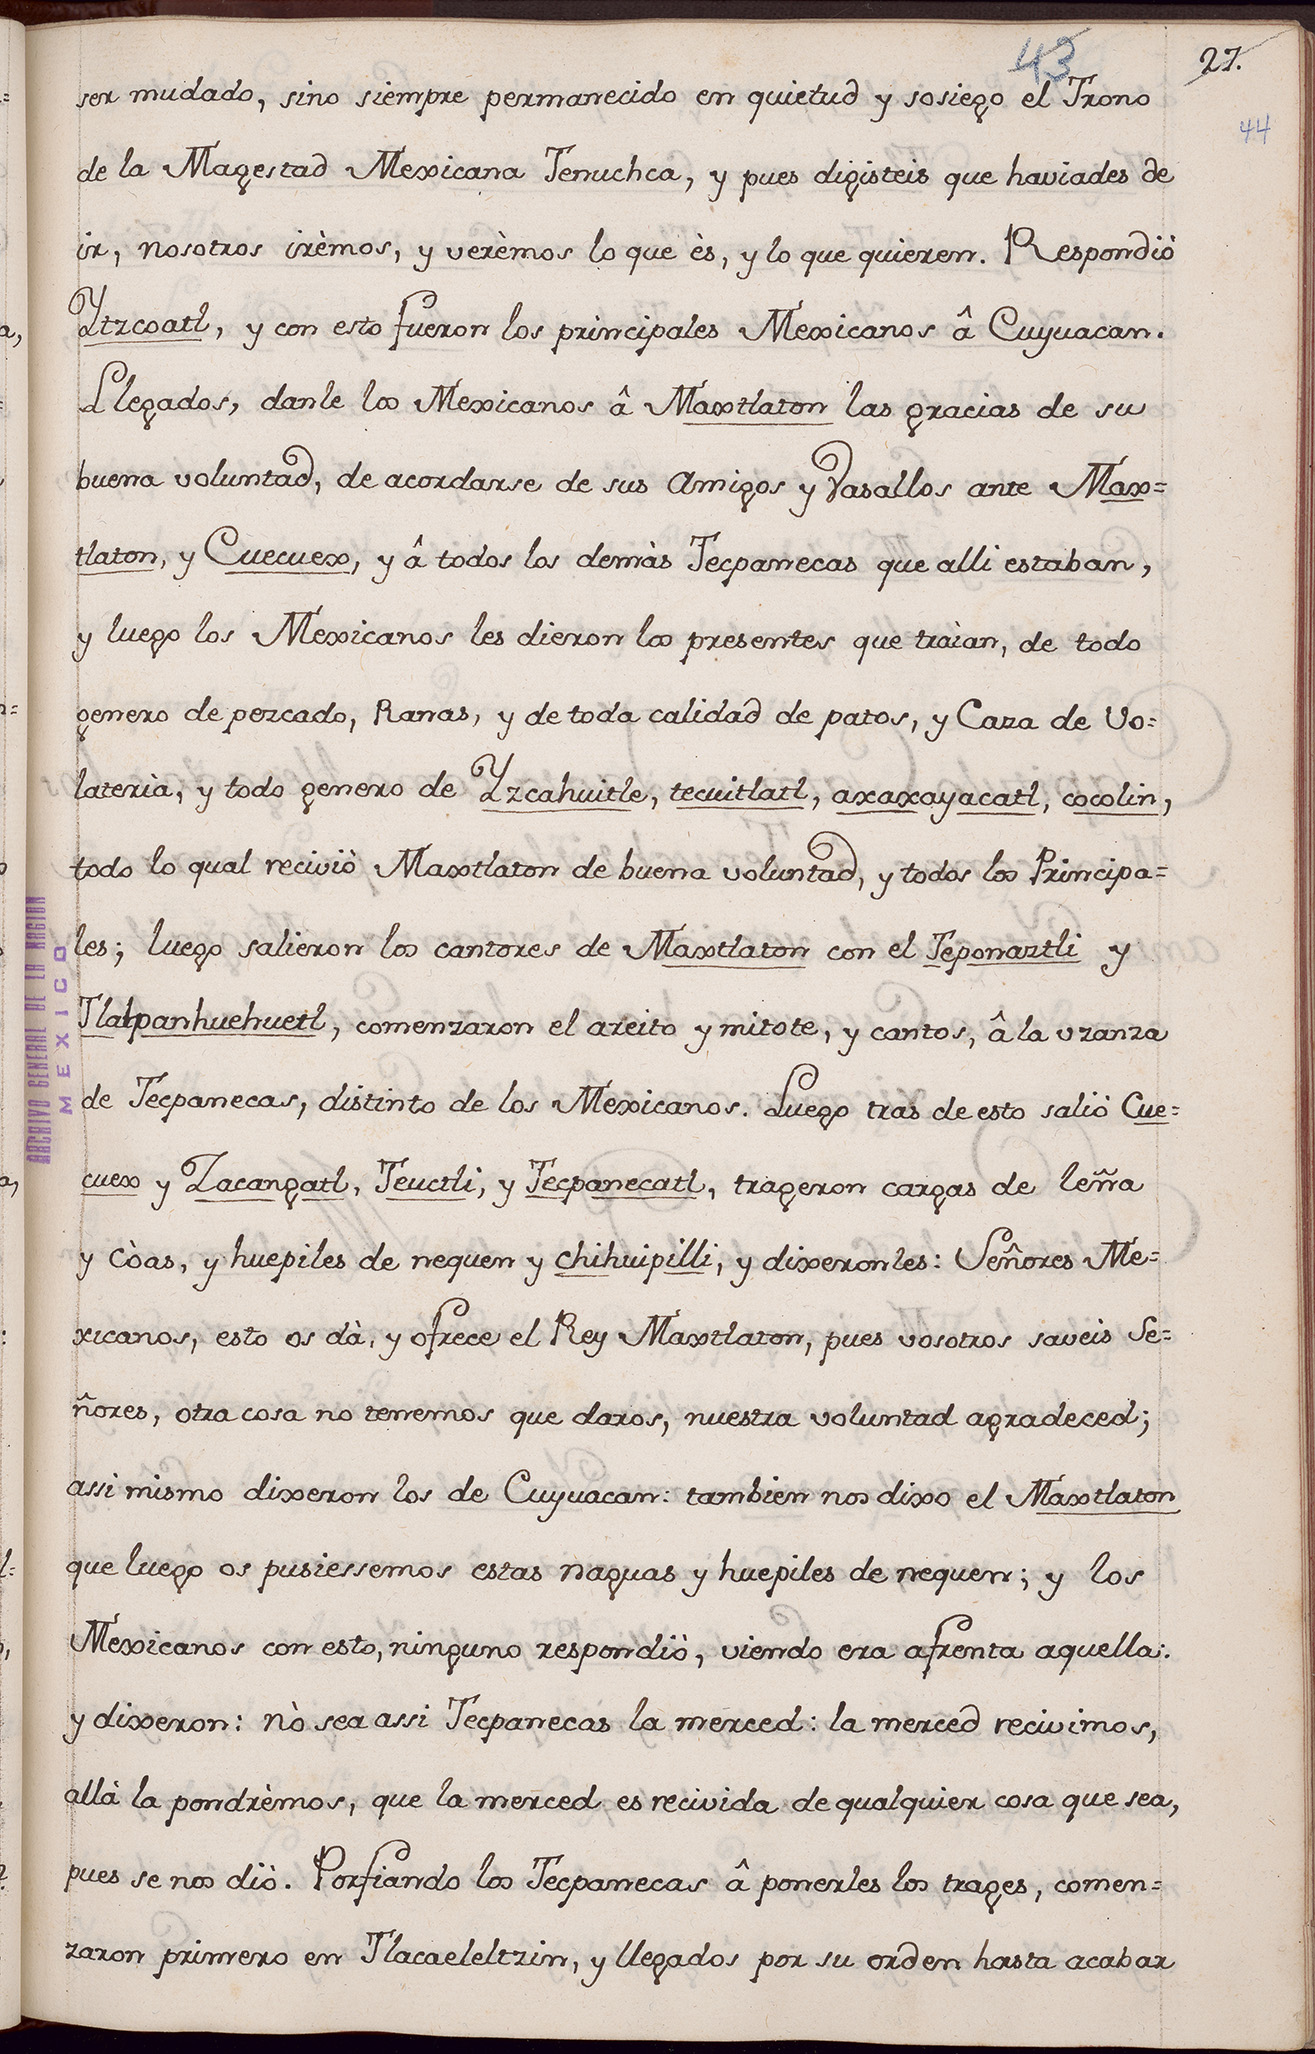 43
27.
44
ser mudado, sino siempre permanecido en quietud y sosiego el Trono
de la Magestad Mexicana Tenuchca, y pues digisteis que haviades de
ir, nosotros irèmos, y verèmos lo que ès, y lo que quieren. Respondiò
Ytzcoatl, y con esto fueron los principales Mexicanos â Cuyuacan.
Llegados, danle los Mexicanos â Maxtlaton las gracias de su
buena voluntad, de acordarse de sus Amigos y Vasallos ante Max=
tlaton, y Cuecuex, y â todos los demàs Tecpanecas que alli estaban,
y luego los Mexicanos les dieron los presentes que traìan, de todo
genero de pezcado, Ranas, y de toda calidad de patos, y Caza de Vo=
laterìa, y todo genero de Yzcahuitle, tecuitlatl, axaxayacatl, cocolin,
todo lo qual reciviò Maxtlaton de buena voluntad, y todos los Principa=
les; luego salieron los cantores de Maxtlaton con el Teponaztli y
Tlalpanhuehuetl, comenzaron el areito y mitote, y cantos, â la vzanza
de Tecpanecas, distinto de los Mexicanos. Luego tras de esto saliò Cue=
cuex y Zacangatl, Teuctli, y Tecpanecatl, trageron cargas de leña
y Còas, y huepiles de nequen y chihuipilli, y dixeronles: Señores Me=
xicanos, esto os dà, y ofrece el Rey Maxtlaton, pues vosotros saveis Se=
ñores, otra cosa no tenemos que daros, nuestra voluntad agradeced;
assi mismo dixeron los de Cuyuacan: tambien nos dixo el Maxtlaton
que luego os pusiessemos estas naguas y huepiles de nequen; y los
Mexicanos con esto, ninguno respondiò, viendo era afrenta aquella:
y dixeron: nò sea assi Tecpanecas la merced: la merced recivimos,
allà la pondrèmos, que la merced es recivida de qualquier cosa que sea,
pues se nos diò. Porfiando los Tecpanecas â ponerles los trages, comen=
zaron primero en Tlacaeleltzin, y llegados por su orden hasta acabar
ARCHIVO GENERAL DE LA NACION
MEXICO